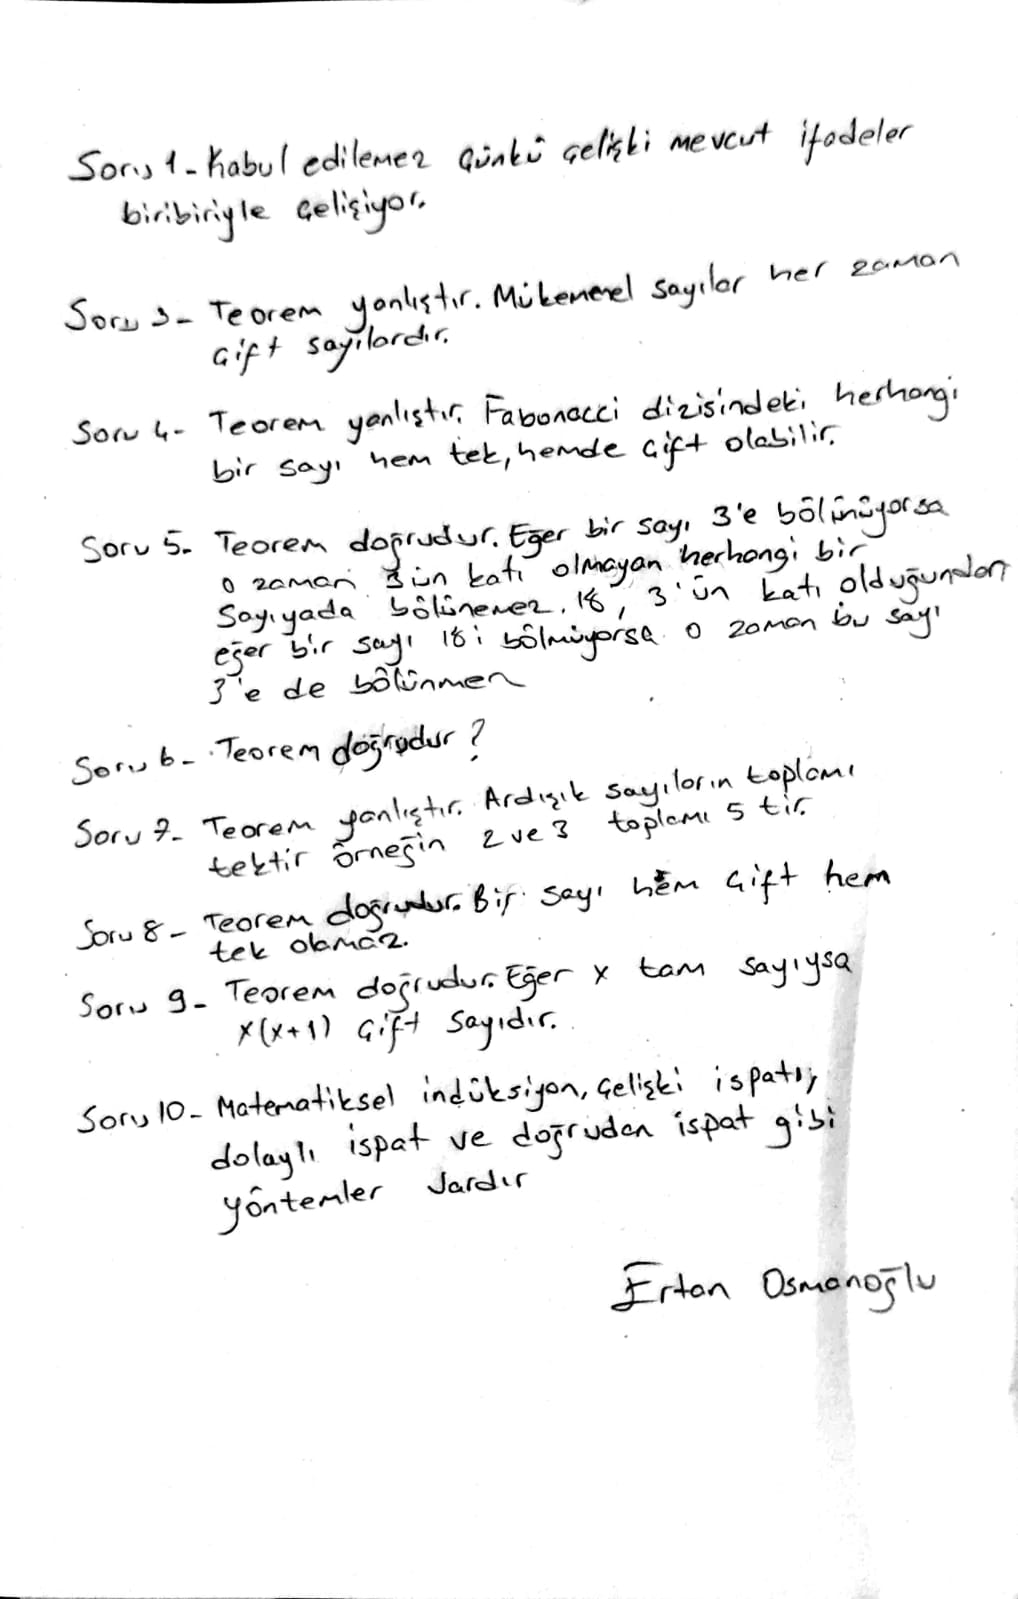 Soru 1- Kabul edilemez Çünkü çelişki mevcut ifadeler
biribiriyle çelişiyor.
Soru 3- Teorem yanlıştır. Mükemmel sayılar her zaman
çift sayılardır.
Soru 4- Teorem yanlıştır. Fabonacci dizisindeki herhangi
bir sayı hem tek, hemde çift olabilir.
Soru 5- Teorem doğrudur. Eğer bir sayı 3'e bölünüyorsa
o zaman 3'ün katı olmayan herhangi bir
Sayıyada bölünemez. 18, 3'ün katı olduğundan
eğer bir sayı 18i bölmüyorsa o zaman bu sayı
3'e de bölünmez
Soru 6- Teorem doğrudur?
Soru 7- Teorem yanlıştır. Ardışık sayıların toplamı
tektir örneğin 2 ve 3 toplamı 5 tir.
Soru 8- Teorem doğrudur. Bir sayı hem çift hem
tek olamaz.
Soru 9- Teorem doğrudur. Eğer x tam sayıysa
x(x+1) çift sayıdır.
Soru 10- Matematiksel indüksiyon, çelişki ispatı,
dolaylı ispat ve doğrudan ispat gibi
yöntemler vardır
Ertan Osmanoğlu